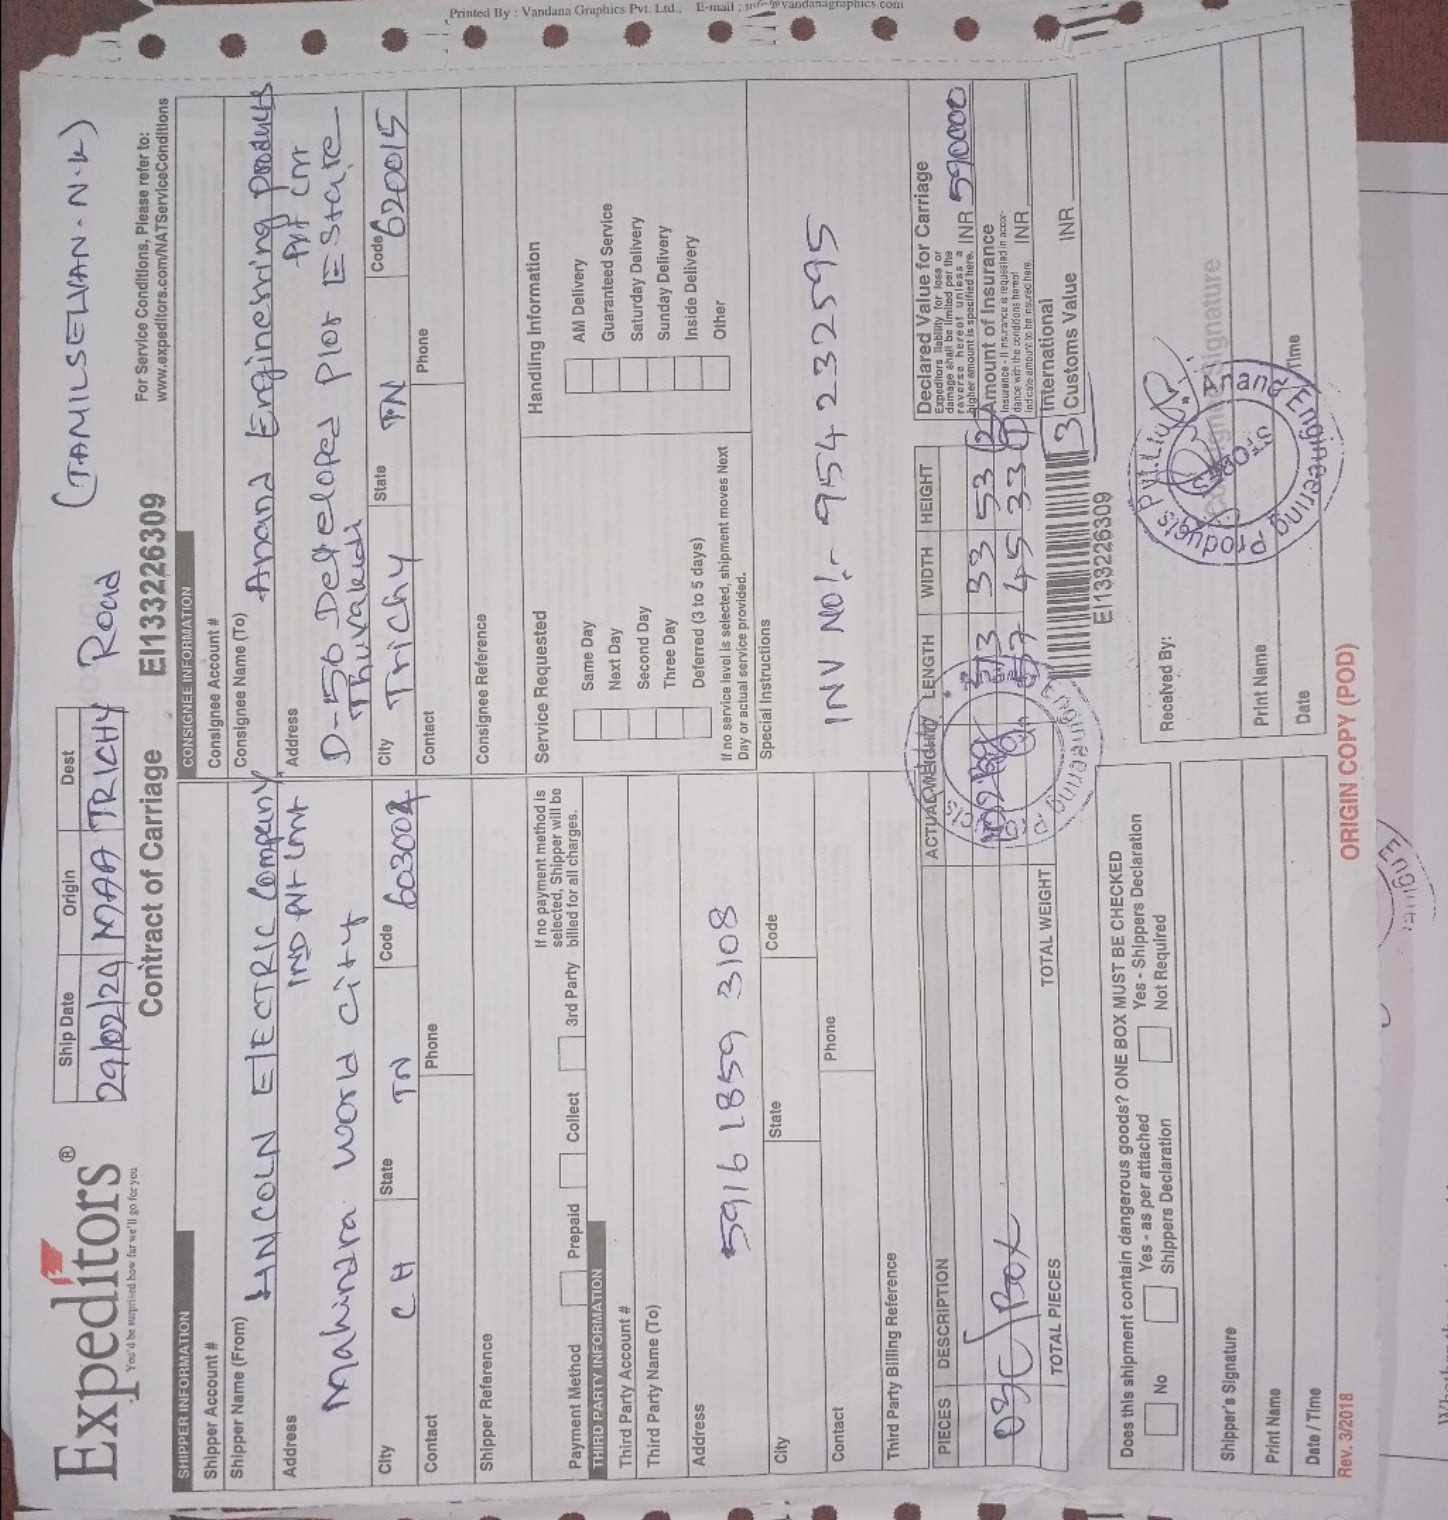 Printed By : Vandana Graphics Pvt. Ltd., E-mail : info@vandanagraphics.com
Expeditors®
You'd be surprised how far we'll go for you
Ship Date Origin Dest
29/02/24 MAA TRICHY Road (TAMILSELVAN.N.K)
Contract of Carriage EI133226309
For Service Conditions, Please refer to:
www.expeditors.com/NATServiceConditions
SHIPPER INFORMATION
Shipper Account #
Shipper Name (From)
LINCOLN ElECTRIC Company
IND Pvt Lmt
Address
Mahindra World City
City State Code
CH TN 603004
Contact Phone
Shipper Reference
Payment Method Prepaid Collect 3rd Party
If no payment method is
selected, Shipper will be
billed for all charges.
THIRD PARTY INFORMATION
Third Party Account #
Third Party Name (To)
Address
5916 L859 3108
City State Code
Contact Phone
Third Party Billing Reference
CONSIGNEE INFORMATION
Consignee Account #
Consignee Name (To)
Anand Engineering products
Pvt Lmt
Address
D-156 Developed Plot EState
Thuvakudi
City State Code
Trichy TN 620015
Contact Phone
Consignee Reference
Service Requested
Same Day
Next Day
Second Day
Three Day
Deferred (3 to 5 days)
If no service level is selected, shipment moves Next
Day or actual service provided.
Handling Information
AM Delivery
Guaranteed Service
Saturday Delivery
Sunday Delivery
Inside Delivery
Other
Special Instructions
INV NO!- 9542332595
PIECES DESCRIPTION ACTUAL WEIGHT LENGTH WIDTH HEIGHT
03 Box
33 53 (2)
45 33 (1)
3
TOTAL PIECES TOTAL WEIGHT
Declared Value for Carriage
Expeditors liability for loss or
damage shall be limited per the
reverse hereof unless a
higher amount is specified here. INR 590000
Amount of Insurance
Insurance - If insurance is requested in accor-
dance with the conditions hereof
indicate amount to be insured here. INR
International
Customs Value INR
EI133226309
Does this shipment contain dangerous goods? ONE BOX MUST BE CHECKED
No
Yes - as per attached
Shippers Declaration
Yes - Shippers Declaration
Not Required
Shipper's Signature
Print Name
Date / Time
Received By:
Consignee Signature
Print Name
Date Time
Anand Engineering Products Pvt. Ltd.
Rev. 3/2018
ORIGIN COPY (POD)